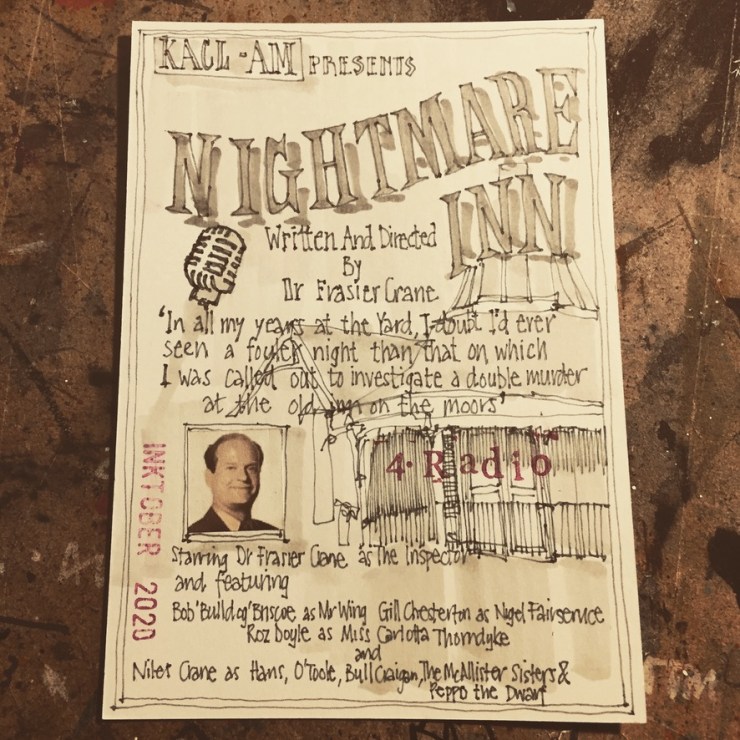 KACL-AM PRESENTS
NIGHTMARE
INN
Written And Directed
By
Dr Frasier Crane
'In all my years at the Yard, I doubt I'd ever
seen a fouler night than that on which
I was called out to investigate a double murder
at the old inn on the moors'
4. Radio
INKTOBER 2020
Starring Dr Frasier Crane as The Inspector
and featuring
Bob 'Bulldog' Briscoe as Mr Wing Gill Chesterton as Nigel Fairservice
Roz Doyle as Miss Carlotta Thorndyke
and
Niles Crane as Hans, O'Toole, Bull Craigan, The McAllister Sisters &
Peppo the Dwarf